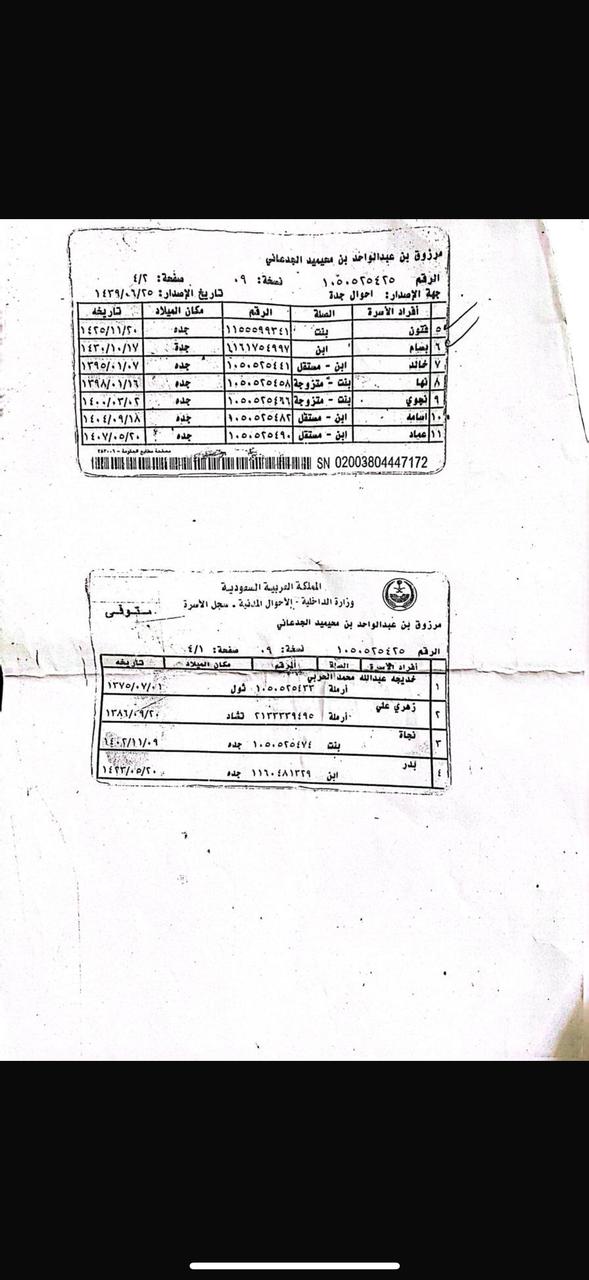 مرزوق بن عبدالواحد بن معيميد الجدعاني
الرقم ١٠٥٠٥٢٥٤٢٥ نسخة: ٠٩ صفحة: ٤/٢
جهة الإصدار: احوال جدة تاريخ الإصدار: ١٤٣٩/٠٦/٢٥
أفراد الأسرة الصلة الرقم مكان الميلاد تاريخه
٥ فتون بنت ١١٥٥٥٩٩٣٤١ جده ١٤٢٥/١١/٢٠
٦ بسام ابن ١١٦١٧٥٤٩٩٧ جدة ١٤٣٠/١٠/١٧
٧ خالد ابن - مستقل ١٠٥٠٥٢٥٤٤١ جده ١٣٩٥/٠١/٠٧
٨ نها بنت - متزوجة ١٠٥٠٥٢٥٤٥٨ جده ١٣٩٨/٠١/١٦
٩ نجوي بنت - متزوجة ١٠٥٠٥٢٥٤٦٦ جده ١٤٠٠/٠٣/٠٢
١٠ اسامه ابن - مستقل ١٠٥٠٥٢٥٤٨٢ جده ١٤٠٤/٠٩/١٨
١١ عماد ابن - مستقل ١٠٥٠٥٢٥٤٩٠ جده ١٤٠٧/٠٥/٢٠
SN 02003804447172
المملكة العربية السعودية
وزارة الداخلية - الأحوال المدنية - سجل الأسرة
متوفى
مرزوق بن عبدالواحد بن معيميد الجدعاني
الرقم ١٠٥٠٥٢٥٤٢٥ نسخة: ٠٩ صفحة: ٤/١
أفراد الأسرة الصلة الرقم مكان الميلاد تاريخه
خديجه عبدالله محمد الحربي
١ أرملة ١٠٥٠٥٢٥٤٣٣ ثول ١٣٧٥/٠٧/٠١
زهري علي
٢ أرملة ٢١٣٣٣٣٩٤٩٥ تشاد ١٣٨٦/٠٩/٢٠
نجاة
٣ بنت ١٠٥٠٥٢٥٤٧٤ جده ١٤٠٢/١١/٠٩
بدر
٤ ابن ١١٦٠٤٨١٣٢٩ جده ١٤٢٣/٠٥/٢٠